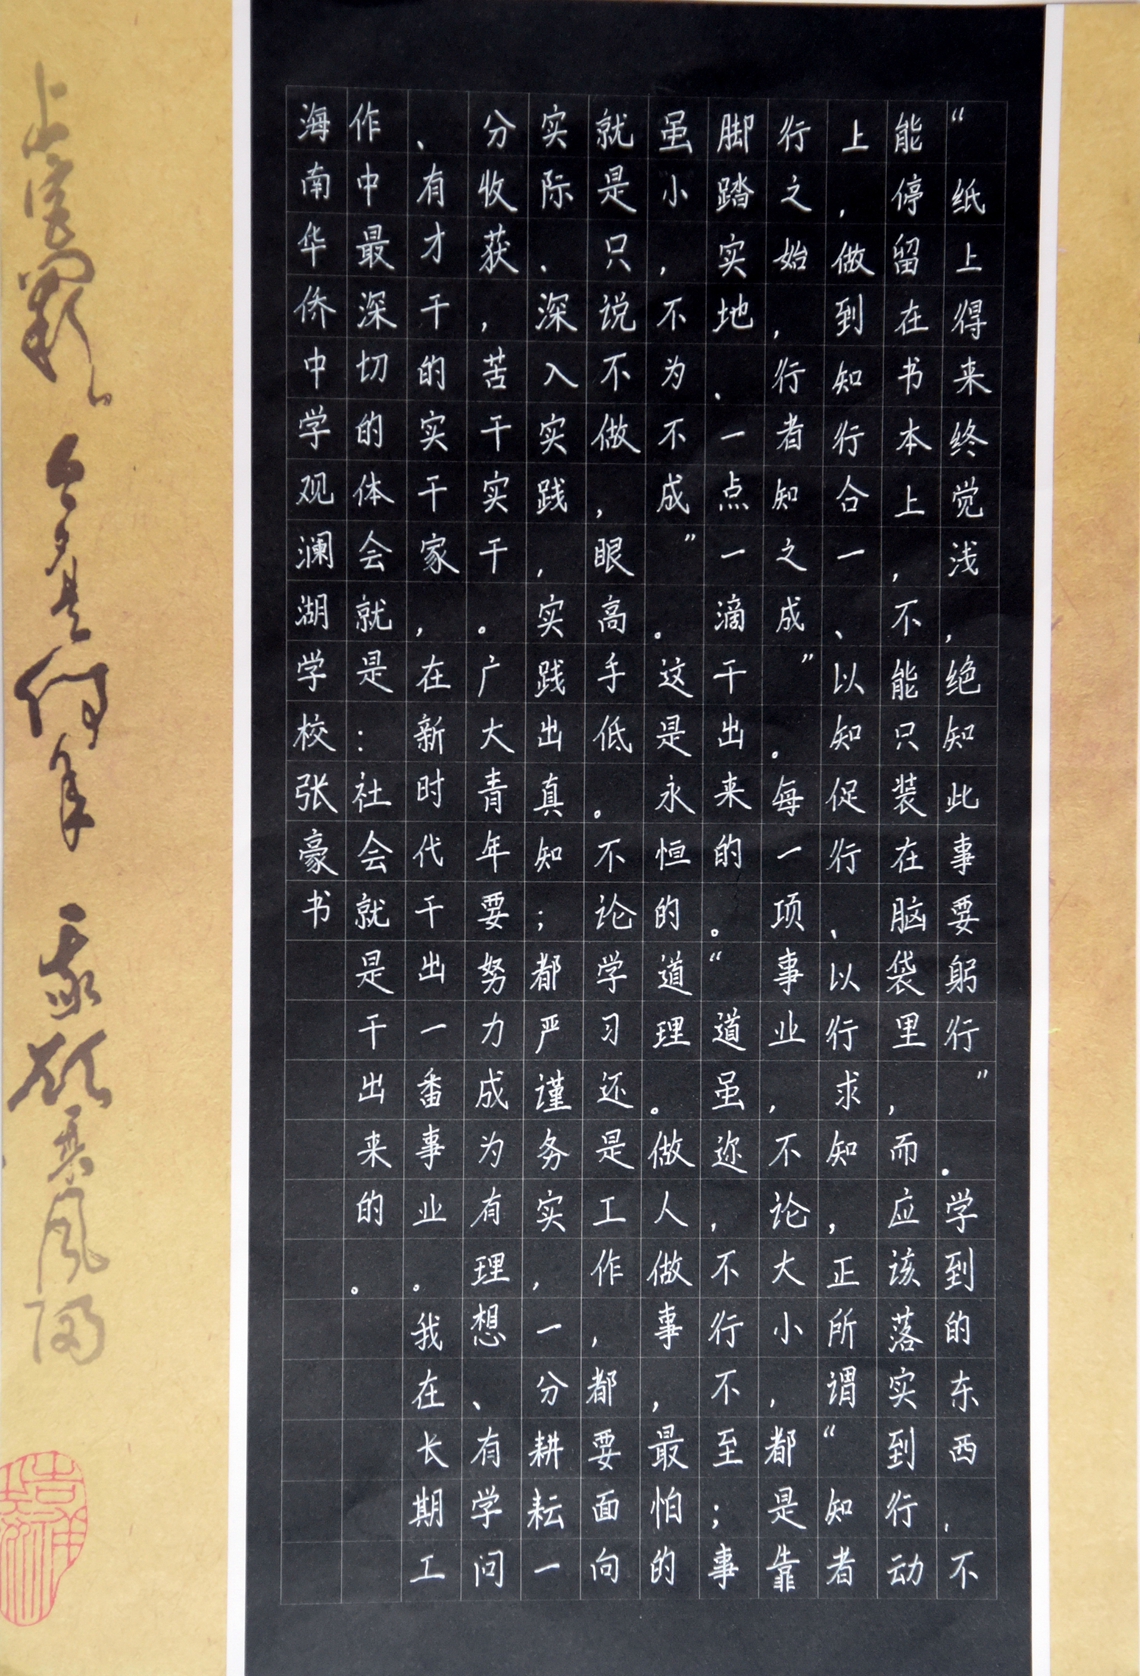 “纸上得来终觉浅，绝知此事要躬行”。学到的东西，不
能停留在书本上，不能只装在脑袋里，而应该落实到行动
上，做到知行合一、以知促行、以行求知，正所谓“知者
行之始，行者知之成”。每一项事业，不论大小，都是靠
脚踏实地、一点一滴干出来的。“道虽迩，不行不至；事
虽小，不为不成”。这是永恒的道理。做人做事，最怕的
就是只说不做，眼高手低。不论学习还是工作，都要面向
实际、深入实践，实践出真知；都严谨务实，一分耕耘一
分收获，苦干实干。广大青年要努力成为有理想、有学问
、有才干的实干家，在新时代干出一番事业。我在长期工
作中最深切的体会就是：社会就是干出来的。
海南华侨中学观澜湖学校张豪书